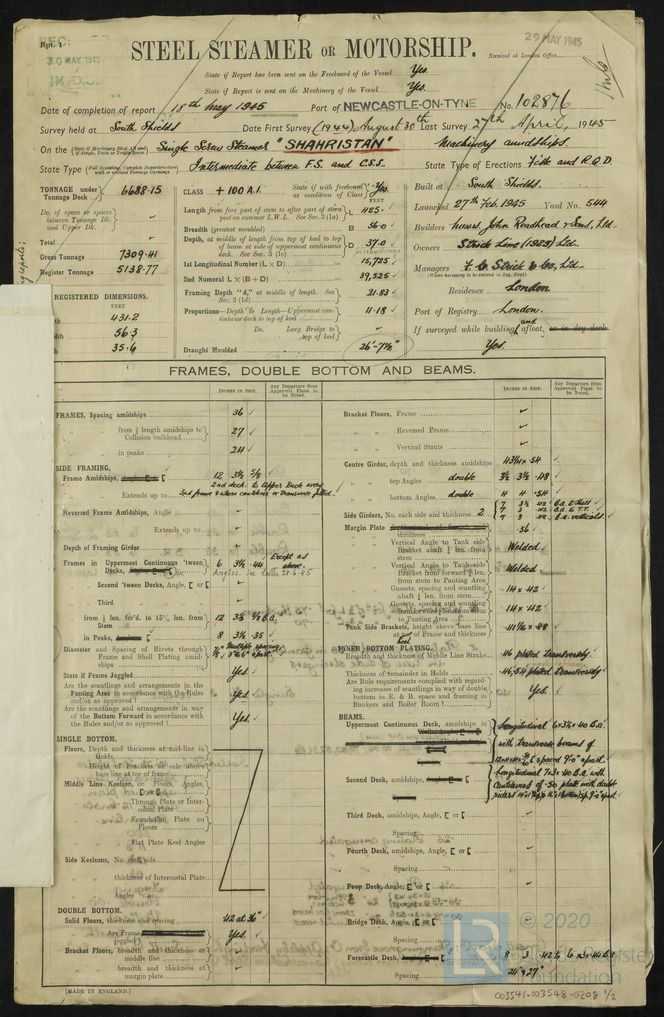 Rpt. 1
30 MAY 1945
29 MAY 1945
Received at London Office
STEEL STEAMER OR MOTORSHIP.
State if Report has been sent on the Freeboard of the Vessel Yes.
State if Report is sent on the Machinery of the Vessel Yes.
Date of completion of report 18th May 1945 Port of NEWCASTLE-ON-TYNE No. 102876
Survey held at South Shields Date First Survey (1944) August 30th Last Survey 27th April, 1945
On the Single Screw Steamer "SHAHRISTAN" Machinery amidships.
State Type Intermediate between F.S. and C.S.S. State Type of Erections F'cstle and R.Q.D.
TONNAGE under Tonnage Deck 6688.15
Do. of space or spaces between Tonnage Dk. and Upper Dk.
Total
Gross Tonnage 7309.41
Register Tonnage 5138.77
REGISTERED DIMENSIONS.
FEET
431.2
56.3
35.6
CLASS +100 A.1. State if with freeboard as condition of Class Yes.
FEET
Length from fore part of stem to after part of stern post on summer L.W.L. See Sec. 3 (1a) L 425.
Breadth (greatest moulded) B 56.0
Depth, at middle of length from top of keel to top of beam at side of uppermost continuous deck. See Sec. 3 (1c) D 37.0
1st Longitudinal Number (L × D) 15,725
2nd Numeral L × (B + D) 39,525
Framing Depth "d," at middle of length. See Sec. 3 (1d) 21.83
Proportions—Depth to Length—Uppermost continuous deck to top of keel 11.18
Do. Long Bridge to top of keel
Draught Moulded 26'-7½"
Built at South Shields.
Launched 27th Feb. 1945 Yard No. 544
Builders Messrs John Readhead & Sons, Ltd.
Owners Strick Line (1923) Ltd.
Managers F. C. Strick & Co, Ltd.
(Where necessary to be entered in Reg. Book)
Residence London
Port of Registry London.
If surveyed while building, and afloat, or in dry dock
Yes.
FRAMES, DOUBLE BOTTOM AND BEAMS.
INCHES IN SHIP.
Any Departure from Approved Plans to be Noted.
INCHES IN SHIP.
Any Departure from Approved Plans to be Noted.
FRAMES, Spacing amidships 36
from ⅗ length amidships to Collision bulkhead 27
in peaks 24
SIDE FRAMING.
Frame Amidships, Angle 12 3½ 5/8
Extends up to
2nd deck & Upper Deck every
Reversed Frame Amidships, Angle
Extends up to
Depth of Framing Girder
Frames in Uppermost Continuous 'tween Decks, 6 3½ .44 Except as above.
Second 'tween Decks, Angle, [ or [
Third
from ⅗ len. for'd. to 15% len. from Stem 12 3½ B.A.
in Peaks, 8 3½ .35
Diameter and Spacing of Rivets through Frame and Shell Plating amidships
State if Frame Joggled Yes.
Are the scantlings and arrangements in the Panting Area in accordance with the Rules and/or as approved? Yes.
Are the scantlings and arrangements in way of the Bottom Forward in accordance with the Rules and/or as approved? Yes.
SINGLE BOTTOM.
Floors, Depth and thickness at mid-line in holds
Height of Brackets in side above base line at toes of frame
Middle Line Keelson, on Floors, Angles, [ or [
Through Plate or Intercostal Plate
Foundation Plate on Floors
Flat Plate Keel Angles
Side Keelsons, No. each side
thickness of Intercostal Plate
Angles
DOUBLE BOTTOM.
Solid Floors, thickness and spacing .42 at 36"
Are Frame joggled? Yes.
Bracket Floors, breadth and thickness at middle line
breadth and thickness at margin plate
Bracket Floors, Frame
Reversed Frame
Vertical Struts
Centre Girder, depth and thickness amidships 43¼ × .54
top Angles double 3½ 3½ .48
bottom Angles double 4 4 .54
Side Girders, No. each side and thickness 2
Margin Plate thickness .56
Vertical Angle to Tank side Bracket abaft ¼ len. from stem Welded
Vertical Angle to Tank side Bracket from forward ¼ len. from stem to Panting Area Welded
Gussets, spacing and scantling abaft ¼ len. from stem 114 × .42
Gussets, spacing and scantling from forward ¼ len. from stem to Panting Area 114 × .42
Tank Side Brackets, height above base line at toe of Frame and thickness
INNER BOTTOM PLATING.
Breadth and thickness of Middle Line Strake .46 plated transversely.
Thickness of remainder in Holds .46, .54 plated transversely
Are Rule requirements complied with regarding increases of scantlings in way of double bottom in E. & B. space and framing in Bunkers and Boiler Room? Yes
BEAMS.
Uppermost Continuous Deck, amidships
Longitudinal 6×3½×.40 B.A.
with transverse beams of
spaced 9'0" apart.
Second Deck, amidships,
Longitudinal 7×3×.40 B.A. with
cantilevers of .50 plate with double
Third Deck, amidships, Angle, [ or [
Spacing
Fourth Deck, amidships, Angle, [ or [
Spacing
Poop Deck, Angle, [ or [
Spacing
Bridge Deck, Angle, [ or [
Spacing
Forecastle Deck, 8 3 .42 & 6×3×.44 B.A.
Spacing 24" & 27"
[MADE IN ENGLAND.]
LR
© 2020
Lloyd's Register
Foundation
003541-003548-0208 1/2